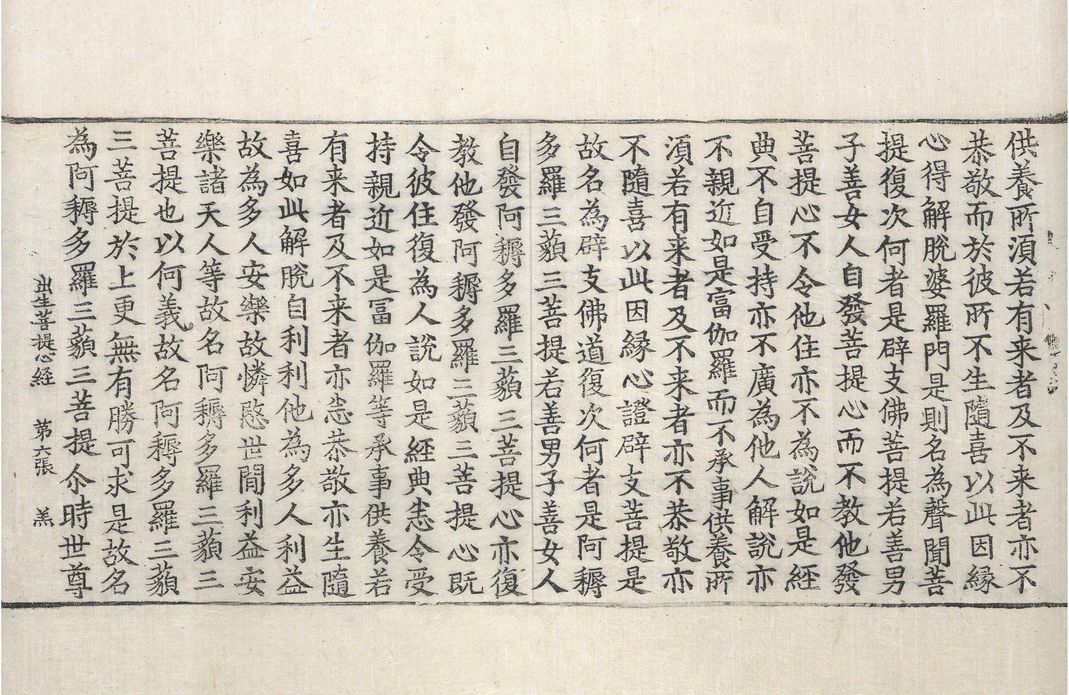 供養所湏若有来者及不来者亦不
恭敬而於彼所不生隨喜以此因縁
心得解脫婆羅門是則名為聲聞菩
提復次何者是辟支佛菩提若善男
子善女人自發菩提心而不教他發
菩提心不令他住亦不為說如是經
典不自受持亦不廣為他人解說亦
不親近如是富伽羅而不承事供養所
湏若有来者及不来者亦不恭敬亦
不隨喜以此因縁心證辟支菩提是
故名為辟支佛道復次何者是阿耨
多羅三藐三菩提若善男子善女人
自發阿耨多羅三藐三菩提心亦復
教他發阿耨多羅三藐三菩提心既
令彼住復為人說如是經典悉令受
持親近如是冨伽羅等承事供養若
有来者及不来者亦悉恭敬亦生隨
喜如此解脫自利利他為多人利益
故為多人安樂故憐愍世間利益安
樂諸天人等故名阿耨多羅三藐三
菩提也以何義故名阿耨多羅三藐
三菩提於上更無有勝可求是故名
為阿耨多羅三藐三菩提尒時世尊
出生菩提心經 第六張 羔